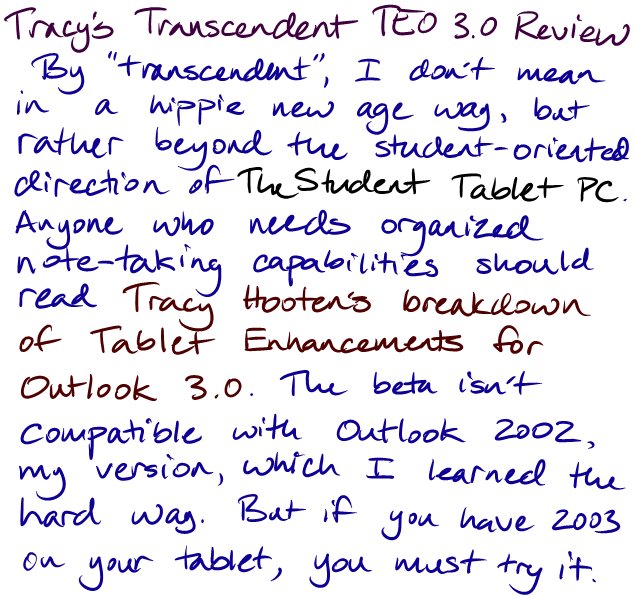 Tracy's Transcendent TEO 3.0 Review
By "transcendent", I don't mean
in a hippie new age way, but
rather beyond the student-oriented
direction of The Student Tablet PC.
Anyone who needs organized
note-taking capabilities should
read Tracy Hooten's breakdown
of Tablet Enhancements for
Outlook 3.0. The beta isn't
compatible with Outlook 2002,
my version, which I learned the
hard way. But if you have 2003
on your tablet, you must try it.